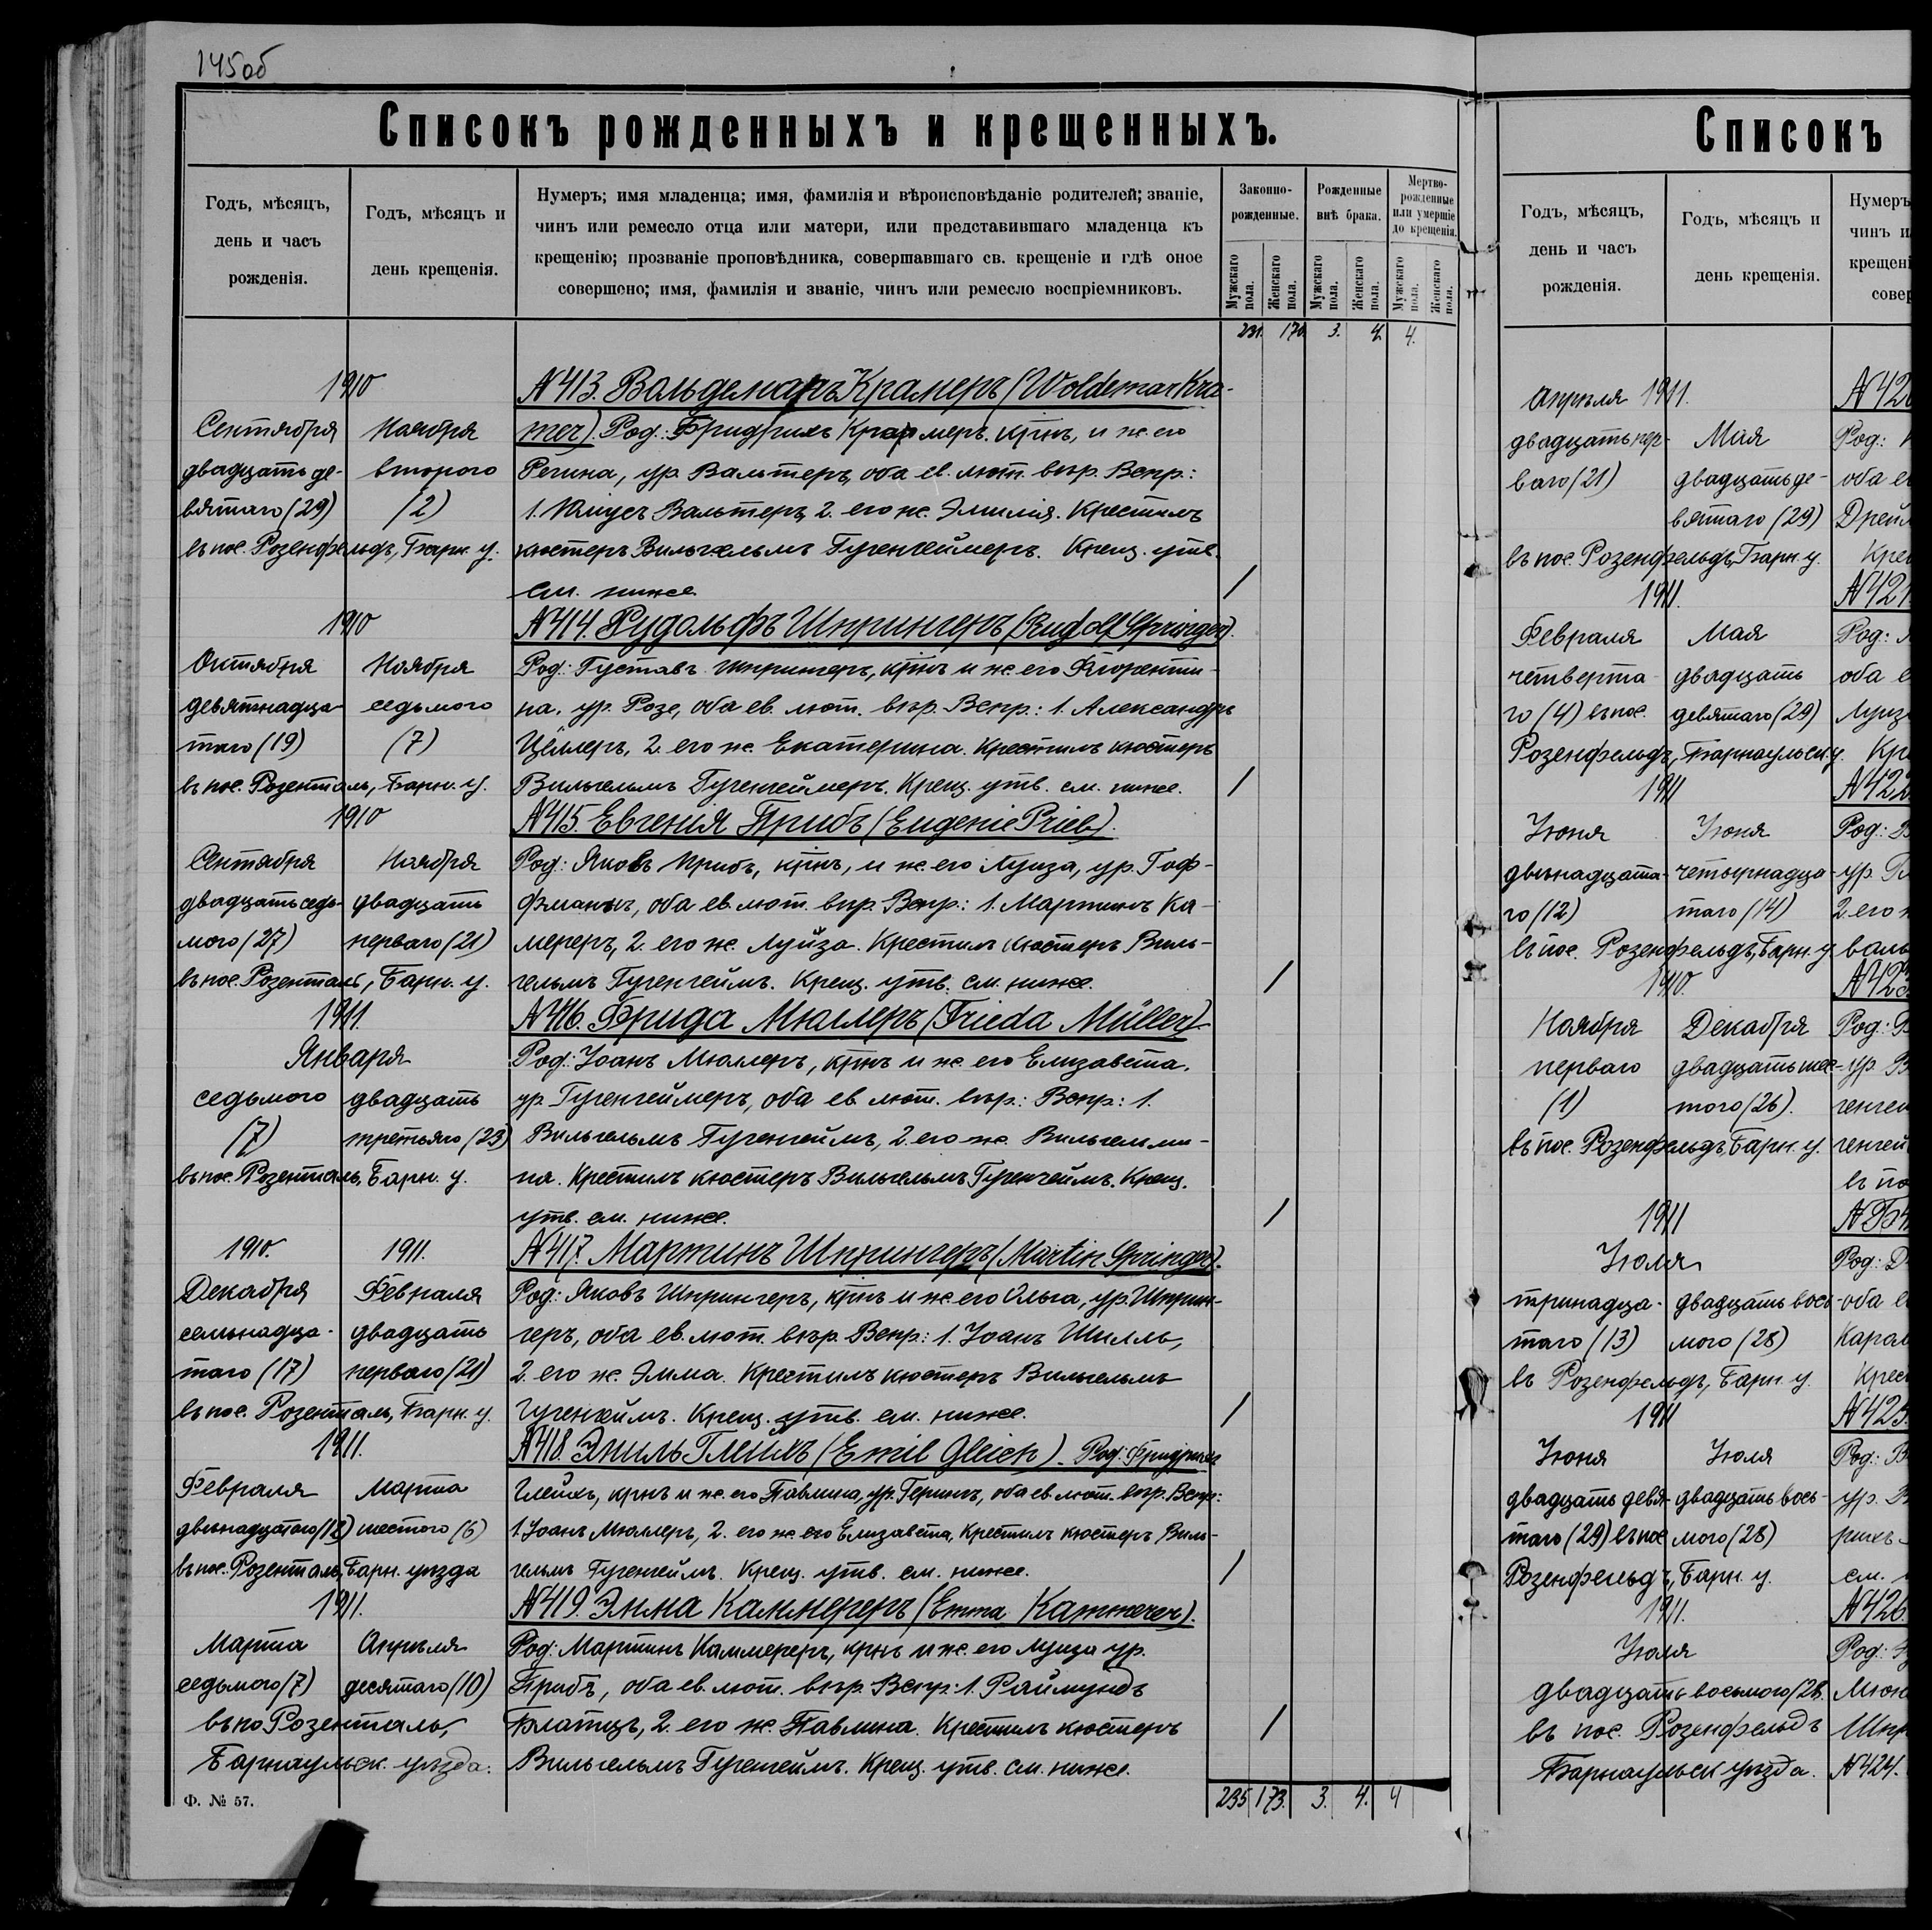 145об
Списокъ рожденныхъ и крещенныхъ.
Годъ, мѣсяцъ,
день и часъ
рожденія.
Годъ, мѣсяцъ и
день крещенія.
Нумеръ; имя младенца; имя, фамилія и вѣроисповѣданіе родителей; званіе,
чинъ или ремесло отца или матери, или представившаго младенца къ
крещенію; прозваніе проповѣдника, совершавшаго св. крещеніе и гдѣ оное
совершено; имя, фамилія и званіе, чинъ или ремесло воспріемниковъ.
Законно-
рожденные.
Рожденные
внѣ брака.
Мертво-
рожденные
или умершіе
до крещенія.
Мужскаго пола.
Женскаго пола.
Мужскаго пола.
Женскаго пола.
Мужскаго пола.
Женскаго пола.
231. 170. 3. 4. 4.
1910 №413. Вольдемаръ Крамеръ (Woldemar Kra-
Сентября Ноября mer). Род.: Фридрихъ Крамеръ, крнъ, и ж. его
двадцать де- второго Регина, ур. Вальтеръ, оба ев. лют. вѣр. Вспр.:
вятаго (29) (2) 1. Юліусъ Вальтеръ, 2. его ж. Эмилія. Крестилъ
въ пос. Розенфельдъ, Барн. у. кюстеръ Вильгельмъ Гугенгеймеръ. Крещ. утв.
см. ниже. /
1910 №414. Рудольфъ Шпрингеръ (Rudolf Springer).
Октября Ноября Род.: Густавъ Шпрингеръ, крнъ и ж. его Флоренти-
девятнадца- седьмого на, ур. Розе, оба ев. лют. вѣр. Вспр.: 1. Александръ
таго (19) (7) Цёллеръ, 2. его ж. Екатерина. Крестилъ кюстеръ
въ пос. Розенталь, Барн. у. Вильгельмъ Гугенгеймеръ. Крещ. утв. см. ниже. /
1910 №415. Евгенія Прибъ (Eugenie Prieb).
Сентября Ноября Род.: Яковъ Прибъ, крнъ, и ж. его Луиза, ур. Гоф-
двадцать седь- двадцать фманъ, оба ев. лют. вѣр. Вспр.: 1. Мартинъ Ка-
мого (27) перваго (21) мереръ, 2. его ж. Луиза. Крестилъ кюстеръ Виль-
въ пос. Розенталь, Барн. у. гельмъ Гугенгеймъ. Крещ. утв. см. ниже. /
1911. №416. Фрида Мюллеръ (Frieda Müller)
Января Род.: Іоанъ Мюллеръ, крнъ и ж. его Елизавета,
седьмого двадцать ур. Гугенгеймеръ, оба ев. лют. вѣр.: Вспр.: 1.
(7) третьяго (23) Вильгельмъ Гугенгеймъ, 2. его ж. Вильгельми-
въ пос. Розенталь, Барн. у. на. Крестилъ кюстеръ Вильгельмъ Гугенгеймъ. Крещ.
утв. см. ниже. /
1910. 1911. №417. Мартинъ Шпрингеръ (Martin Springer).
Декабря Февраля Род.: Яковъ Шпрингеръ, крнъ и ж. его Ольга, ур. Шприн-
семьнадца- двадцать геръ, оба ев. лют. вѣр. Вспр.: 1. Іоанъ Шилль,
таго (17) перваго (21) 2. его ж. Эмма. Крестилъ кюстеръ Вильгельмъ
въ пос. Розенталь, Барн. у. Гугенгеймъ. Крещ. утв. см. ниже. /
1911. №418. Эмиль Глейхъ (Emil Gleich). Род.: Фридрихъ
Февраля Марта Глейхъ, крнъ и ж. его Павлина, ур. Герингъ, оба ев. лют. вѣр. Вспр.:
двѣнадцатаго (12) шестого (6) 1. Іоанъ Мюллеръ, 2. его ж. его Елизавета, Крестилъ кюстеръ Виль-
въ пос. Розенталь, Барн. уѣзда гельмъ Гугенгеймъ. Крещ. утв. см. ниже. /
1911. №419. Эмма Каммереръ (Emma Kammerer).
Марта Апрѣля Род.: Мартинъ Каммереръ, крнъ и ж. его Луиза ур.
седьмого (7) десятаго (10) Прибъ, оба ев. лют. вѣр. Вспр.: 1. Раймундъ
въ по Розенталь, Блатцъ, 2. его ж. Павлина. Крестилъ кюстеръ /
Барнаульск. уѣзда. Вильгельмъ Гугенгеймъ. Крещ. утв. см. ниже.
235 173. 3. 4. 4
Ф. № 57.
Списокъ
Годъ, мѣсяцъ,
день и часъ
рожденія.
Годъ, мѣсяцъ и
день крещенія.
Нумеръ
чинъ и
крещені
совер
Апрѣля 1911. №420
двадцать пер- Мая Род.:
ваго (21) двадцать де- оба ев
вятаго (29) Дрей
въ пос. Розенфельдъ, Барн. у. Кре
1911. №421
Февраля Мая Род.:
четверта- двадцать оба е
го (4) въ пос. девятаго (29) Луиз
Розенфельдъ, Барнаульск. у. Кр
1911 №422
Іюня Іюня Род.: В
двѣнадцата- четырнадца- ур.
го (12) таго (14) 2. его ж
въ пос. Розенфельдъ, Барн. у. валь
1910. №423
Ноября Декабря Род.:
перваго двадцать шес- ур. В
(1) того (26). генге
въ пос. Розенфельдъ, Барн. у. генгей
въ по
1911
Іюля Род.: Д
тринадца- двадцать вось- оба е
таго (13) мого (28) Карл
въ Розенфельдъ, Барн. у. Крес
1911 №425.
Іюня Іюля Род.: В
двадцать девя- двадцать вось- ур. В
таго (29) въ пос мого (28) рихъ
Розенфельдъ, Барн. у. см.
1911. №426.
Іюля Род.:
двадцать восьмого (28. Мюл
въ пос. Розенфельдъ Шпр
Барнаульск уѣзда. №424.